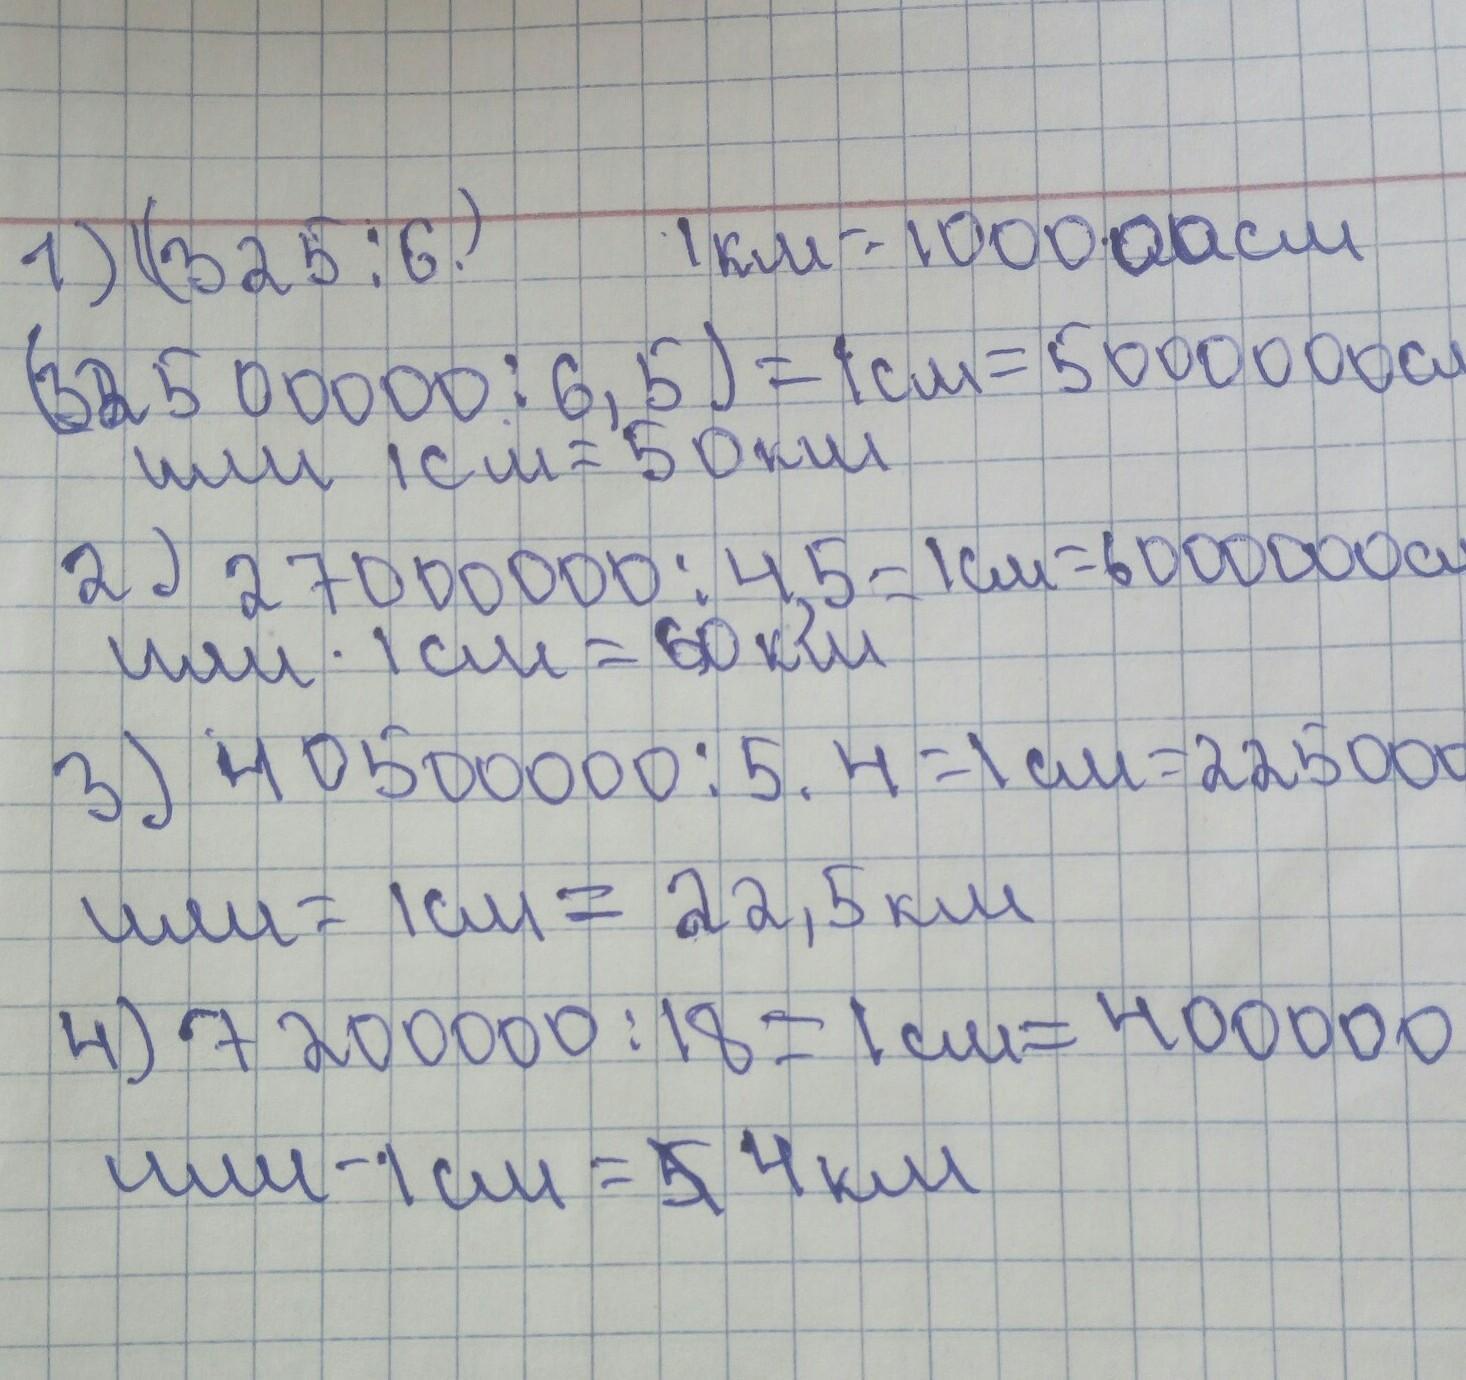 1) ((325:6.) 1км=100000см
(32500000:6,5)=1см=5000000см
или 1см=50км
2) 27000000:4,5=1см=6000000см
или 1см=60км
3) 40500000:5.4=1см=225000
или=1см=22,5км
4) 7200000:18=1см=400000
или-1см=4км